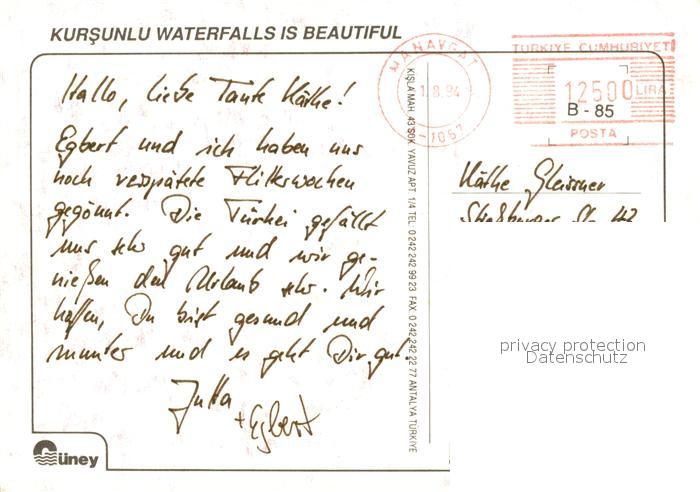 KURŞUNLU WATERFALLS IS BEAUTIFUL
MANAVGAT
1.8.94
1057
TÜRKİYE CUMHURİYETİ
12500 LIRA
B - 85
POSTA
Hallo, liebe Tante Käthe!
Egbert und ich haben uns
noch verspätete Flitterwochen
gegönnt. Die Türkei gefällt
uns sehr gut und wir ge-
nießen den Urlaub sehr. Wir
hoffen, Du bist gesund und
munter und es geht Dir gut.
Jutta
+ Egbert
KIŞLA MAH. 43 SOK. YAVUZ APT. 1/4 TEL: 0 242 242 99 23 FAX. 0 242 242 22 77 ANTALYA TÜRKİYE
Käthe Gleissner
Straßburger St. 42
privacy protection
Datenschutz
Güney